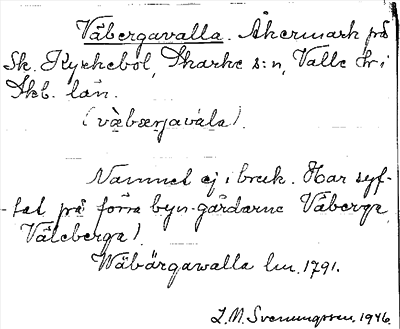 Våbergavalla. Åkermark på
Sk. Kyrkebol, Skarke s:n, Valle hr i
Skb. län.
(
Namnet ej i bruk. Har syf-
tat på förra byn-gårdarne Våberga,
Wäbärgawalla lm. 1791.
L.M. Svenungsson. 1946.